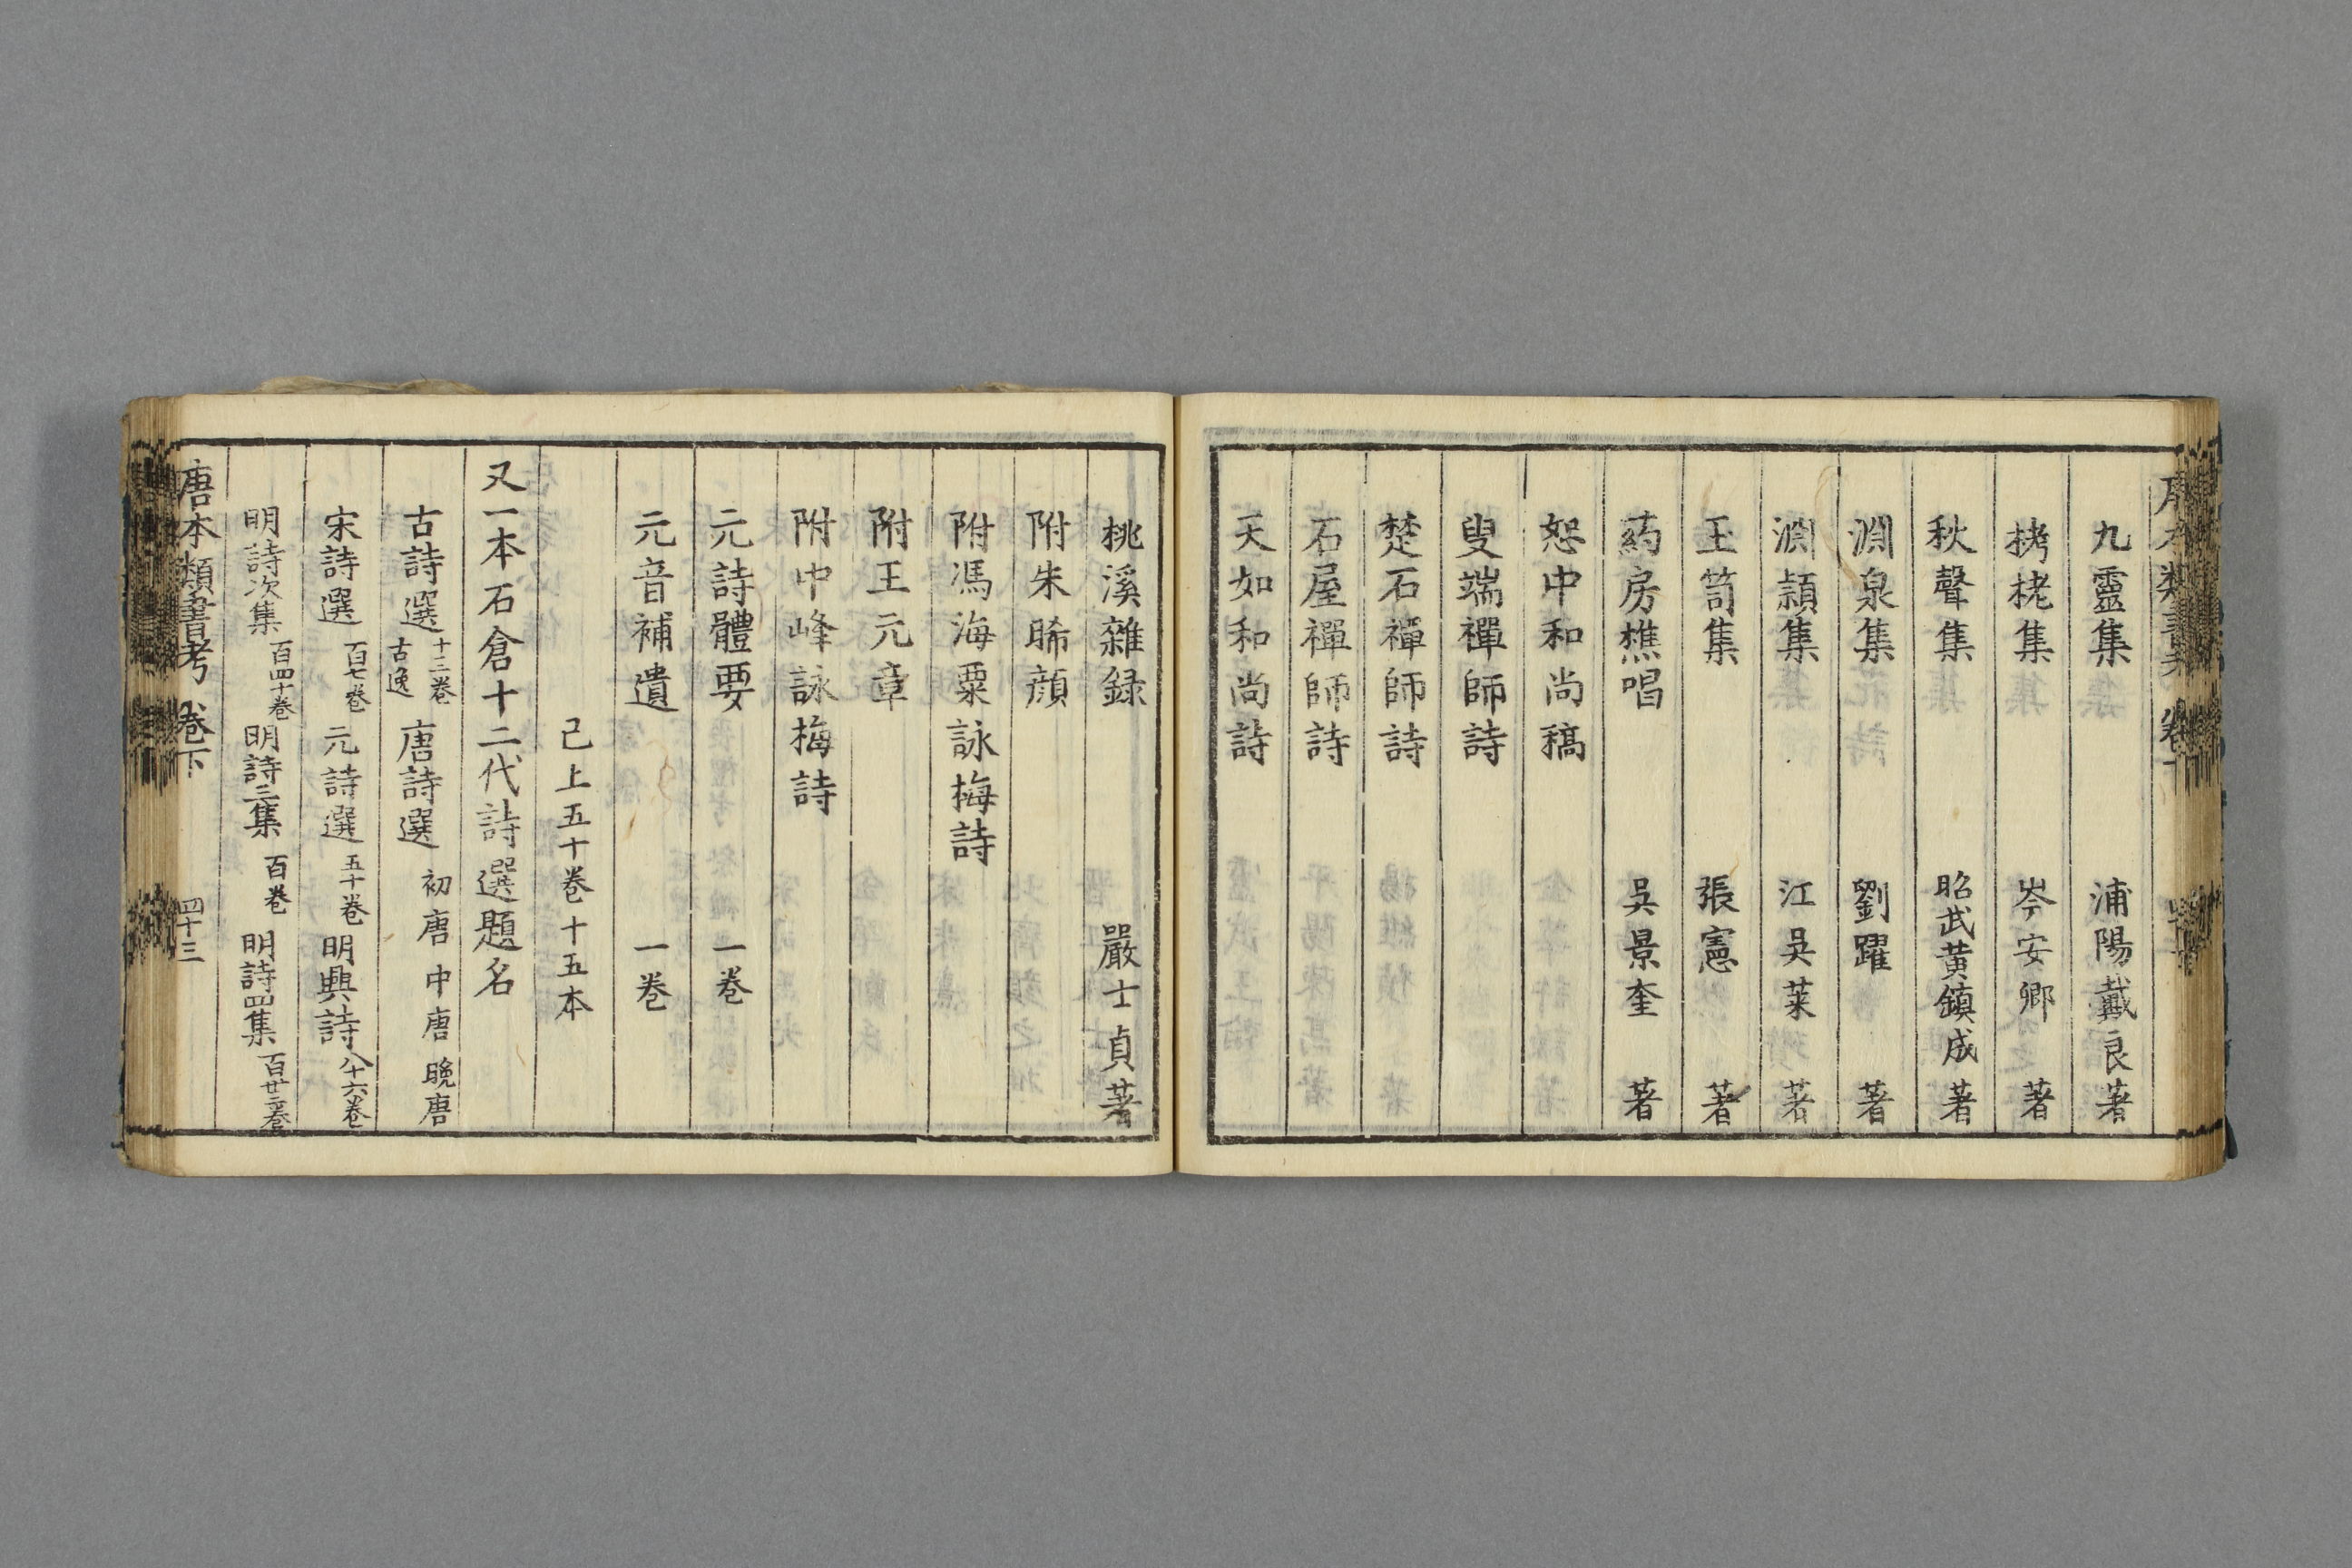 九靈集 浦陽戴良著
栲栳集 岑安卿 著
秋聲集 昭武黄鎮成著
淵泉集 劉躍 著
淵頴集 江吳萊 著
玉笥集 張憲 著
葯房樵唱 吳景奎 著
恕中和尚稿
叟端禪師詩
楚石禪師詩
石屋禪師詩
天如和尚詩
桃溪雜録 嚴士貞著
附朱晞顔
附馮海粟詠梅詩
附王元章
附中峰詠梅詩
元詩體要 一卷
元音補遺 一卷
己上五十卷十五本
又一本石倉十二代詩選題名
古詩選 十三卷 古逸 唐詩選 初唐 中唐 晩唐
宋詩選 百七卷 元詩選 五十卷 明興詩 八十六卷
明詩次集 百四十卷 明詩三集 百卷 明詩四集 百廿二卷
唐本類書考 卷下 四十三